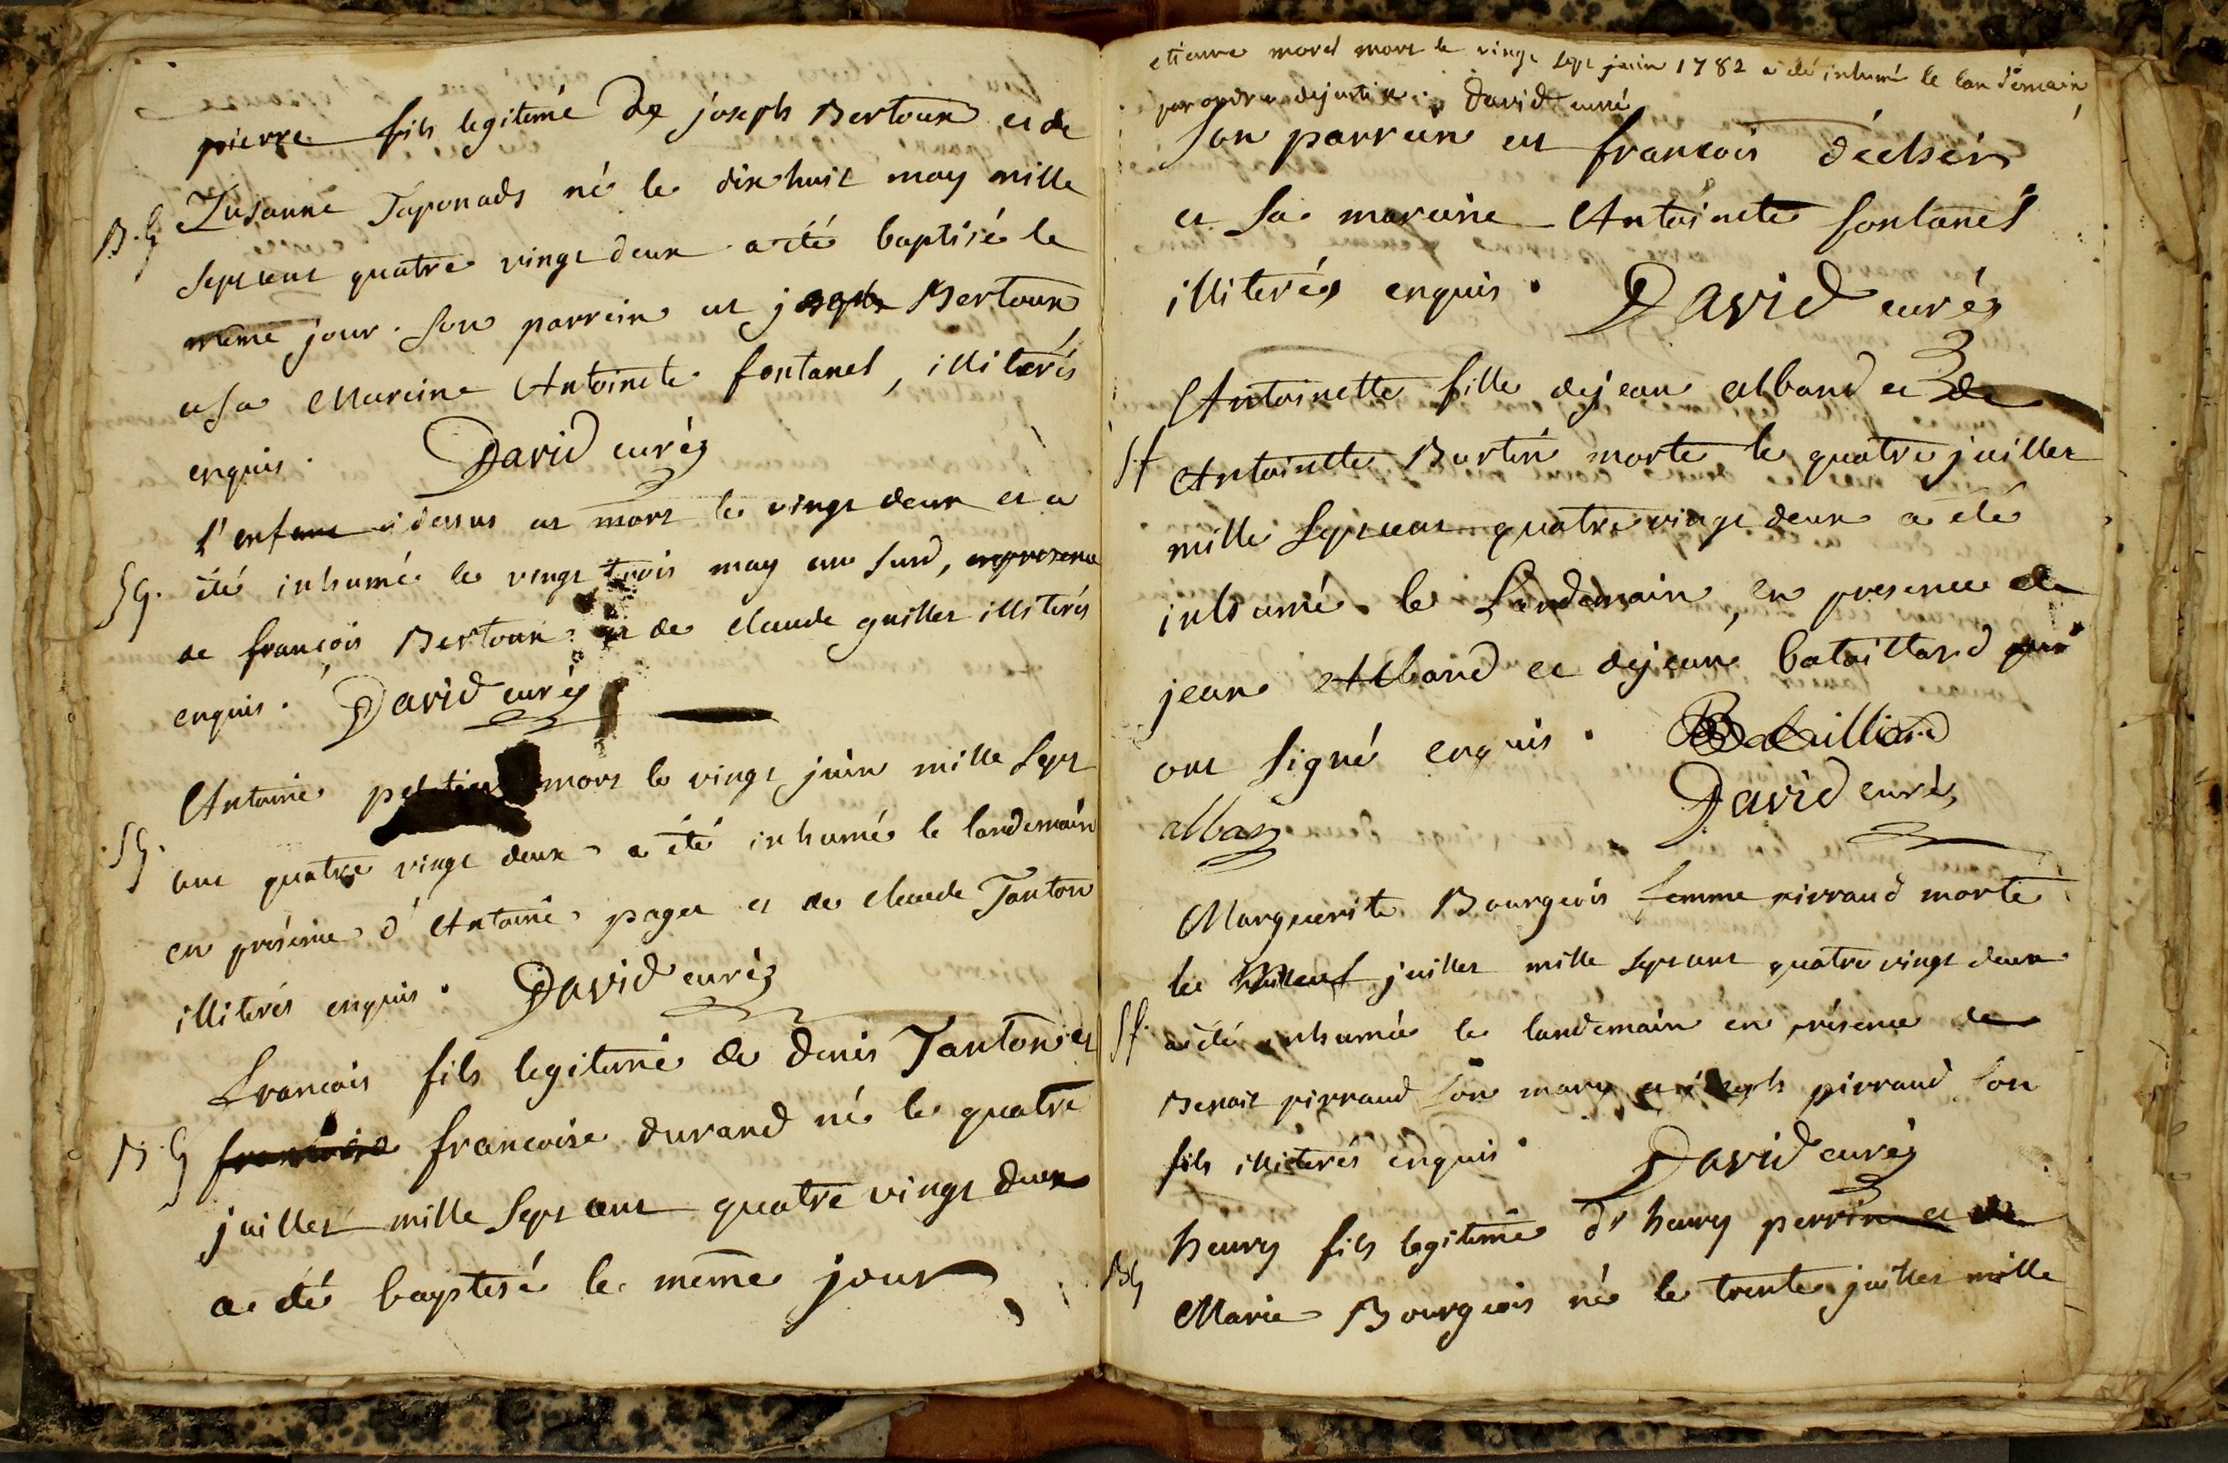 pierre fils legitimé de joseph Bertoux et de
B.G Zusanne Taponads né le dix huit may mille
sept cent quatre vingt deux a été baptisé le
même jour. Son parrein est joseph Bertoux
et sa Mareine Antoinete fontanel, illiterés
enquis. David curé
l'enfant ci dessus est mort le vingt deux et a
SG. été inhumé le vingt trois may an susd, en presence
de françois Bertoux et de claude guillet illiterés
enquis. David curé
Antoine mort le vingt juin mille sept
SG. cent quatre vingt deux a été inhumé le landemain
en présence d'Antoine paget et de claude Tonton
illiterés enquis. David curé
francois fils legitime de denis Tonton et
B.G francoise durand né le quatre
juillet mille sept cent quatre vingt deux
a été baptisé le même jour,
etienne morel mort le vingt sept juin 1782 a été inhumé le landemain
par ordre de justice. David curé
Son parrein est francois déchér
et sa mareine Antoinete fontanel
illiterés enquis. David curé
Antoinette fille de jean alband et de
Sf Antoinette Burtin morte le quatre juillet
mille sept cent quatre vingt deux a été
inhumé le Landemain, en presence de
jean Alband et de jean bataillard qui
ont signé enquis. Bataillard
alban David curé
Marguerite Bourgeois femme pirraud morte
le neuf juillet mille sept cent quatre vingt deux
Sf. a été inhumée le landemain en présence de
Benoit pirraud son mary et joseph pirraud son
fils illiterés enquis. David curé
henry fils legitime d'henry perrin et de
BG Marie Bourgeois né le trente juillet mille